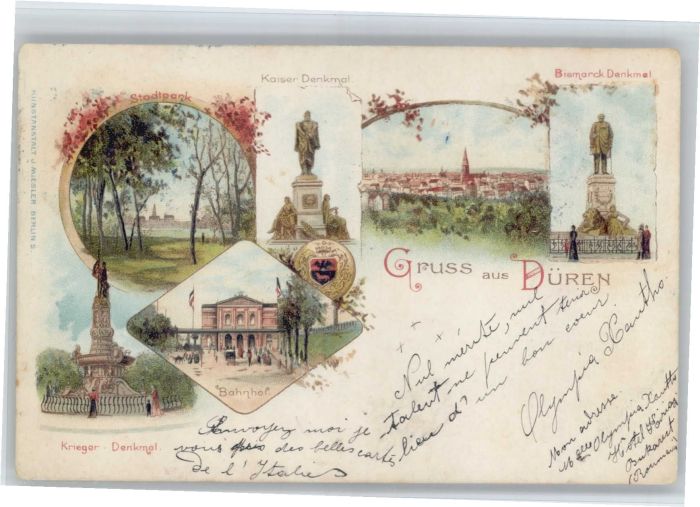 Stadtpark
Kaiser Denkmal.
Bismarck Denkmal
KUNSTANSTALT J. MIESLER, BERLIN S.
Gruss aus Düren
Bahnhof.
Krieger-Denkmal.
Nul mérite, nul
talent ne peuvent tenir
lieu d'un bon coeur
Olympia Xantho.
Envoyez moi je
vous des belles cartes
de l'Italie
Mon adresse.
Mlle Olympia Xantho
Hôtel
Bukarest
(Roumanie)